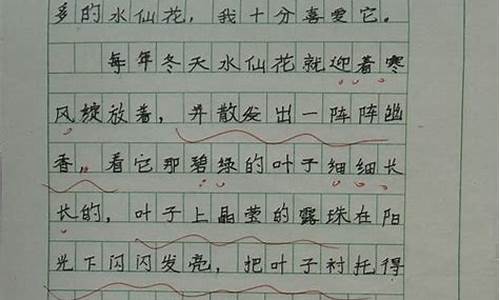 多的水仙花，我十分喜爱它。
每年冬天水仙花就迎着寒
风绽放着，并散发出一阵阵幽
香，看它那碧绿的叶子细细长
长的，叶子上晶莹的露珠在阳
光下闪闪发亮，把叶子衬托得